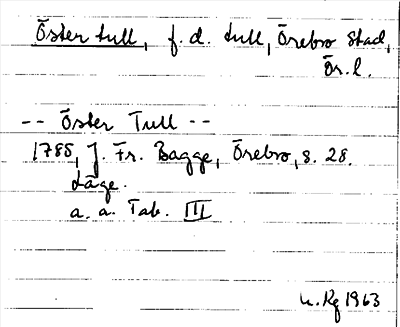 Öster tull, f.d. tull, Örebro stad,
Ör.l.
-- Öster Tull --
1785, J. Fr. Bagge, Örebro, s. 28.
Läge.
a. a. Tab. III
1963